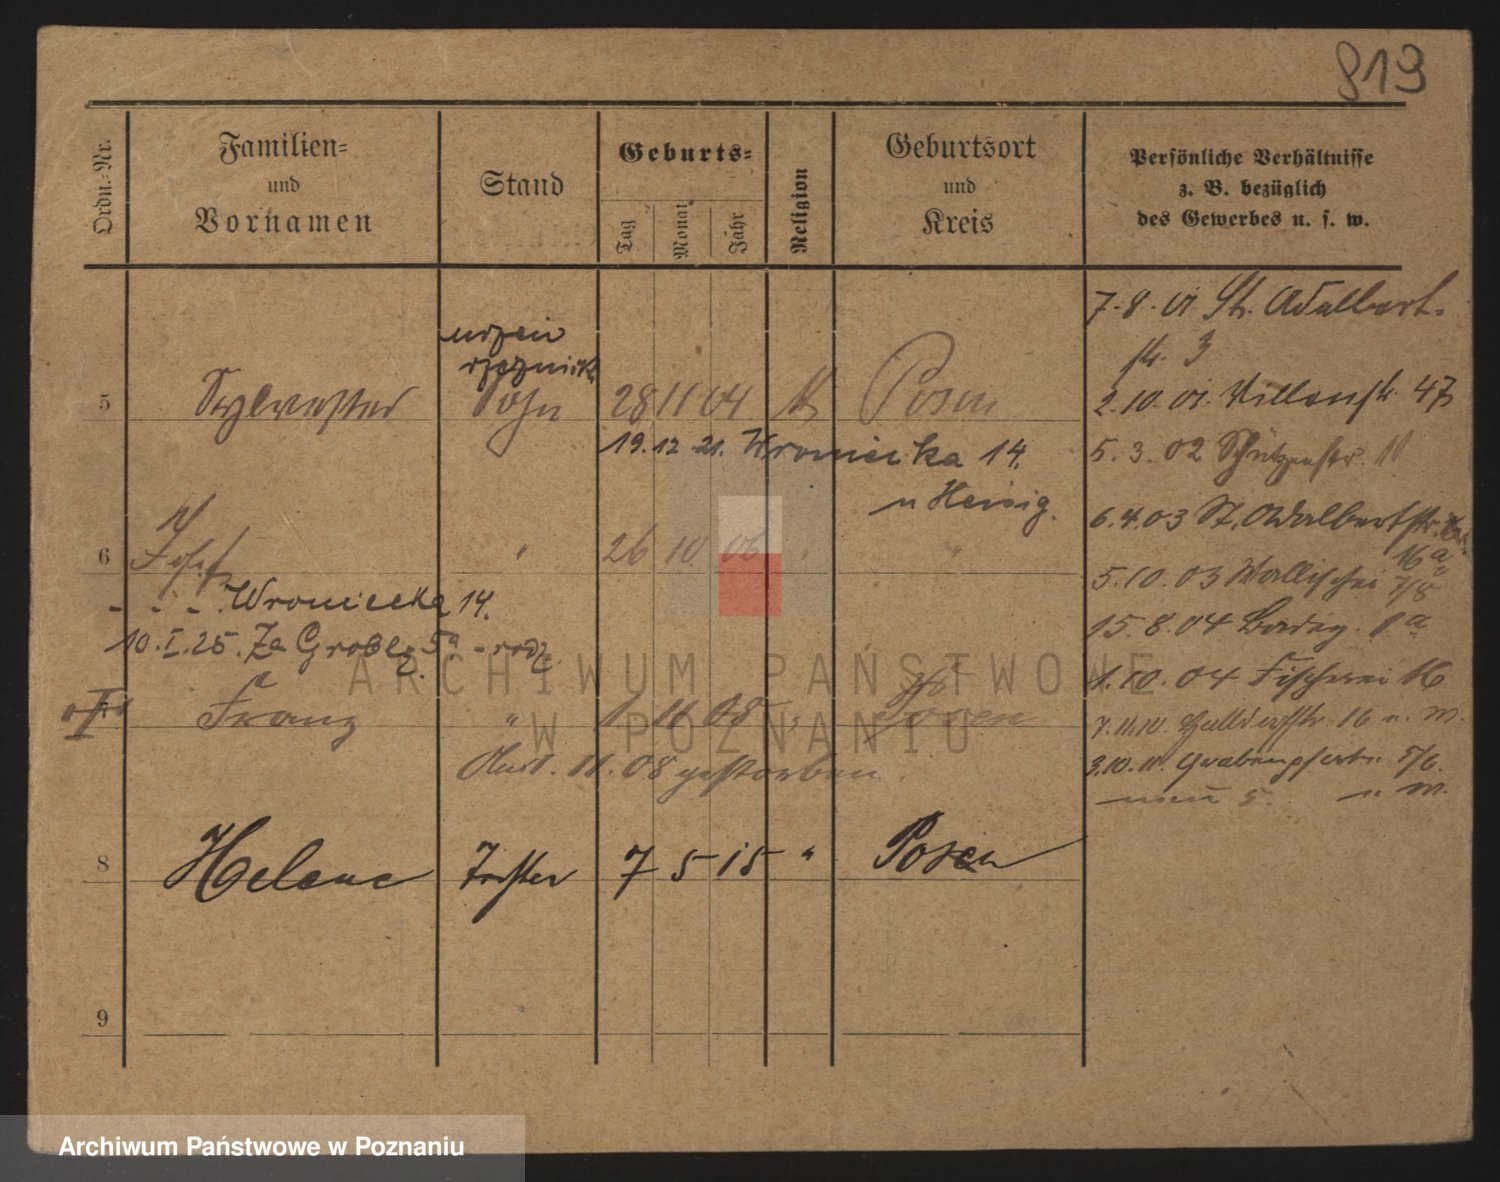 819
Ordn.-Nr.
Familien-
und
Vornamen
Stand
Geburts-
Tag
Monat
Jahr
Religion
Geburtsort
und
Kreis
Persönliche Verhältnisse
z. B. bezüglich
des Gewerbes u. s. w.
uczeń
rzeźnick
5 Sylvester Sohn 28 11 04 Posen
19.12.21. Wroniecka 14.
u Heisig.
6 Josef " 26 10 06 " "
- - - . Wroniecka 14.
10.I.25. Za Groblą 5a - rodz.
Franz " 1 11 08 " Posen
1.11.08 gestorben.
8 Helene Tochter 7 5 15 " Posen
9
7.8.01 St. Adalbert-
str. 3
2.10.01. Villenstr. 47
5.3.02 Schützenstr. 11
6.4.03 St. Adalbertstr.
16a
5.10.03 Wallischei 7/8
15.8.04 8a
1.10.04 Fischerei 16
7.11.10. 16 u. M.
3.10.11. Grabenpforte. 5/6.
5. u M.
ARCHIWUM PAŃSTWOWE
W POZNANIU
Archiwum Państwowe w Poznaniu